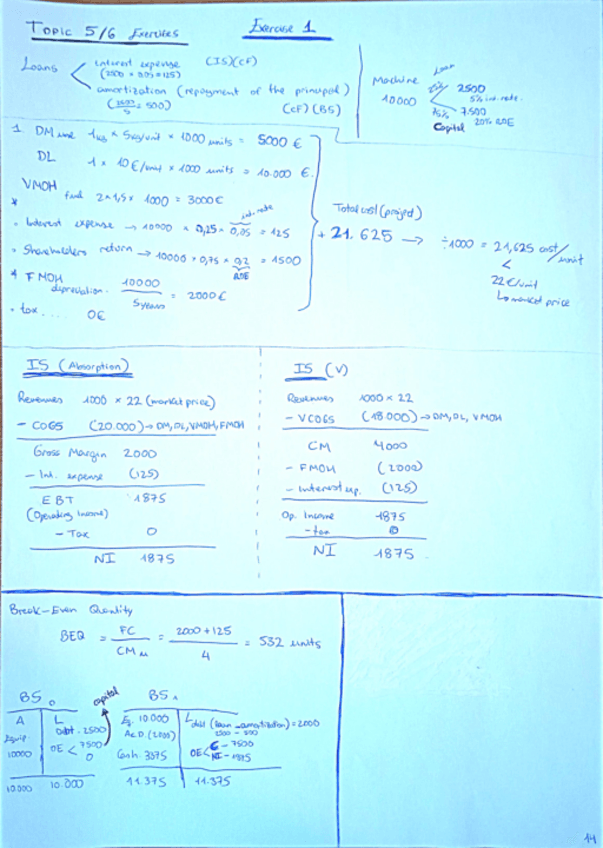 TOPIC 5/6 Exercises
Exercise 1
Loans
interest expense (IS)(CF)
(2500 × 0,05 = 125)
amortization (repayment of the principal)
(2500/5 = 500) (CF)(BS)
Machine
10000
Loan
25% 2500
5% int. rate.
75% 7.500
Capital 20% ROE
1 DM 1kg × 5€kg/unit × 1000 units = 5000 €
DL 1 × 10 €/unit × 1000 units = 10.000 €
VMOH
* fuel 2 × 1,5 × 1000 = 3000€
• Interest expense → 10000 × 0,25 × 0,05 = 125
int. rate
• Shareholders return → 10000 × 0,75 × 0,2 = 1500
ROE
* FMOH
depreciation. 10000/5years = 2000€
• tax.... 0€
Total cost (project)
+ 21.625 → ÷1000 = 21,625 cost/unit
<
22€/unit
↳ market price
IS (Absorption)
Revenues 1000 × 22 (market price)
- COGS (20.000) → DM, DL, VMOH, FMOH
Gross Margin 2000
- Int. expense (125)
EBT 1875
(Operating Income)
- Tax 0
NI 1875
IS (V)
Revenues 1000 × 22
- VCOGS (18.000) → DM, DL, VMOH
CM 4000
- FMOH (2000)
- Interest exp. (125)
Op. Income 1875
- tax 0
NI 1875
Break-Even Quantity
BEQ = FC/CMu = 2000+125/4 = 532 units
BS0
A L
Equip. Debt - 2500
10000 OE < 7500
0
10.000 10.000
capital
BS1
Eq. 10.000 L debt (loan - amortization) = 2000
2500 - 500
Ac.D. (2000)
Cash 3375 OE < C - 7500
NI - 1875
11.375 11.375
14